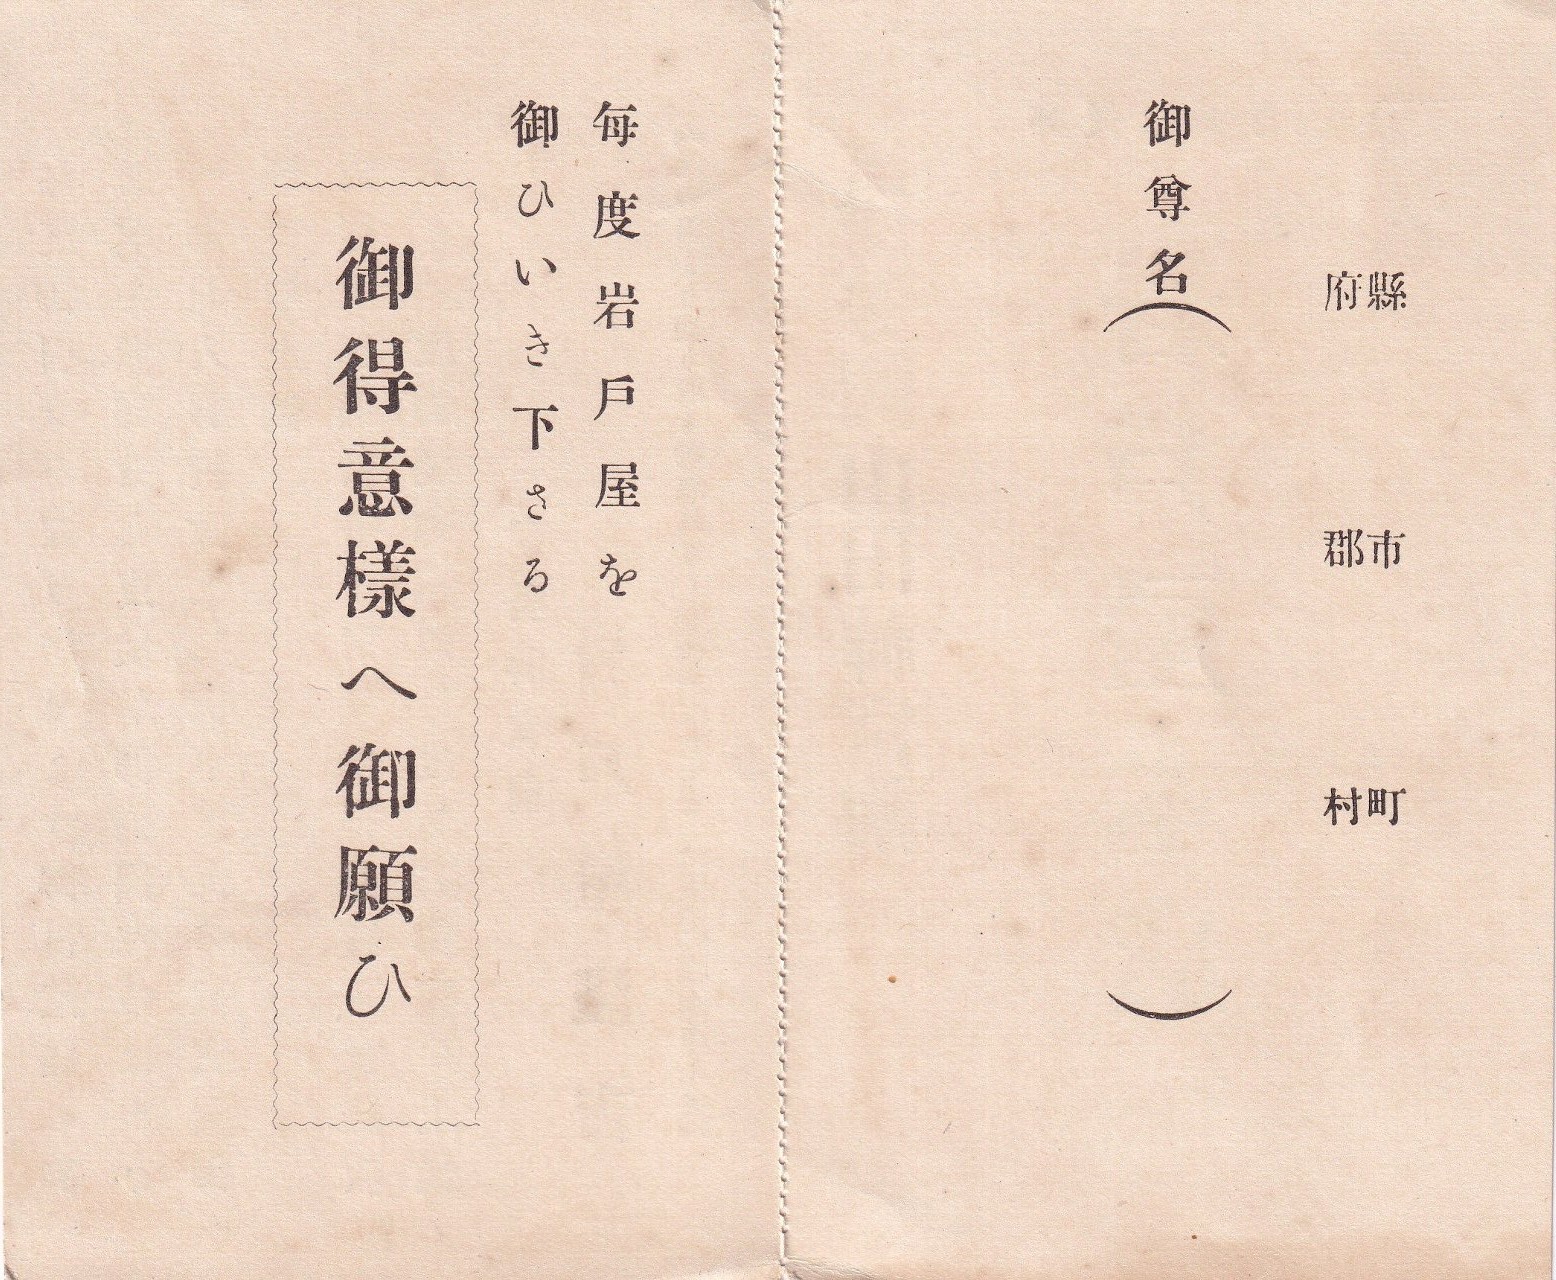 縣府
市郡
町村
御尊名（　　　）
毎度岩戸屋を
御ひいき下さる
御得意樣へ御願ひ